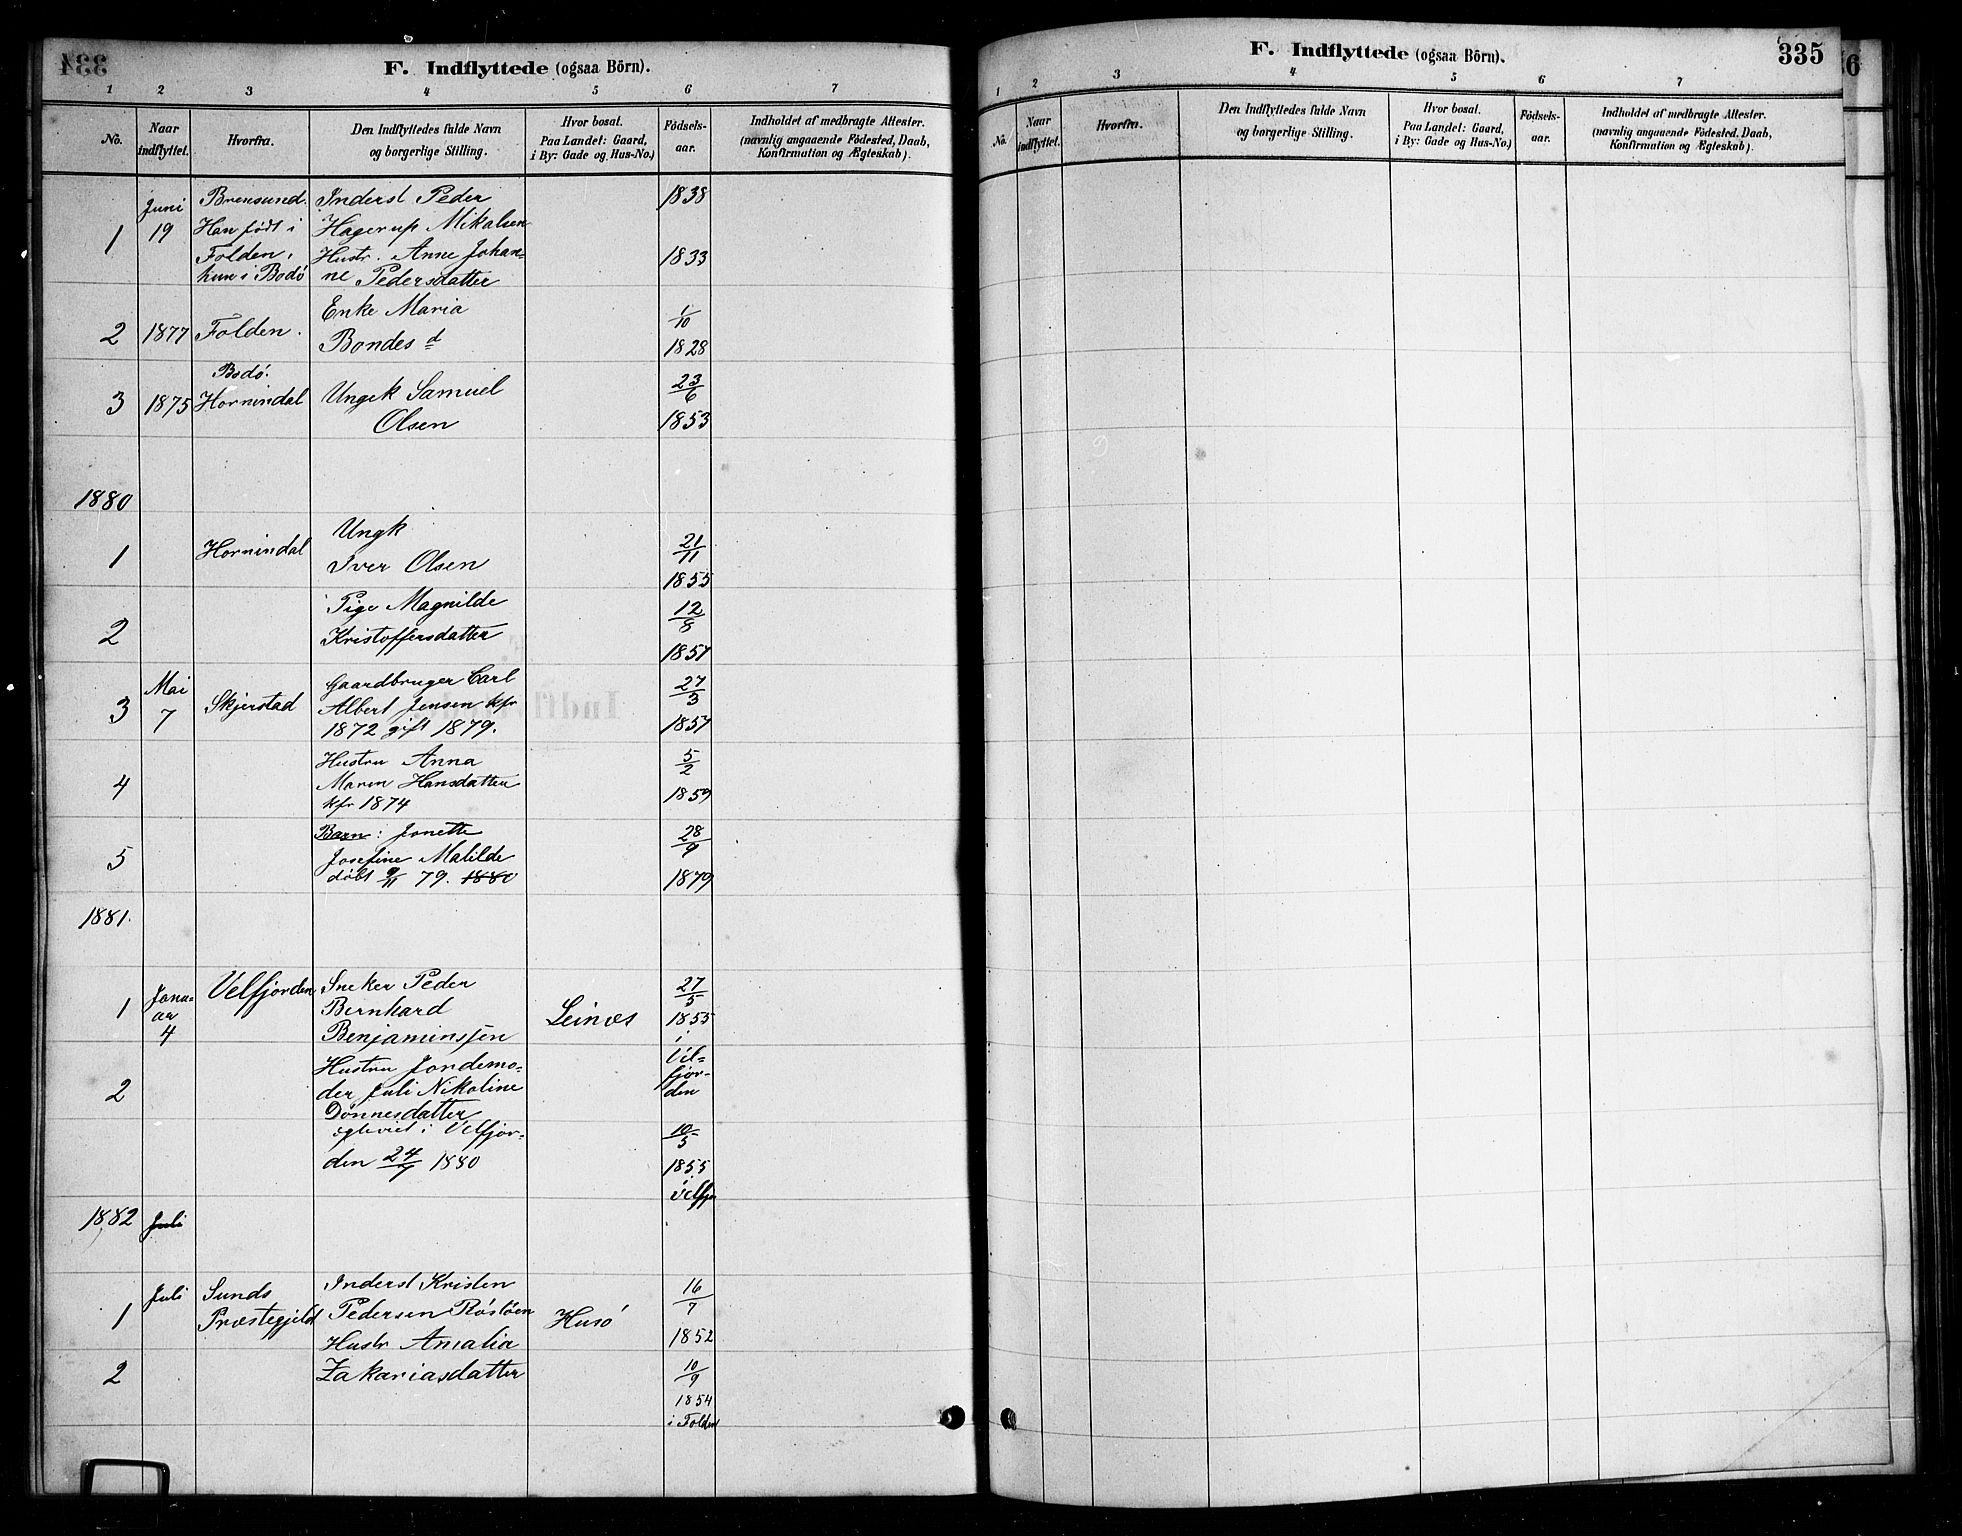 334
F. Indflyttede (ogsaa Börn).
1 2 3 4 5 6 7
No. Naar indflyttet. Hvorfra. Den Indflyttedes fulde Navn og borgerlige Stilling. Hvor bosat. Paa Landet: Gaard, i By: Gade og Hus-No.) Födsels-aar. Indholdet af medbragte Attester. (navnlig angaaende Födested, Daab, Konfirmation og Ægteskab).
Juni Brensund. Inderst Peder 1838
1 19 Han født i Hagerup Mikalsen
Folden, Hustr. Anne Johan- 1833
hun i Bodö ne Pedersdatter
Enke Maria 1/10
2 1877 Folden. Bondesd 1828
Bodö.
3 1875 Hornindal Ungk Samuel 23/6
Olsen 1853
1880
Ungk
1 Hornindal Iver Olsen 21/11
1855
Pige Magnilde 12/8
2 Kristoffersdatter
1857
Mai Gaardbruger Carl 27/3
3 7 Skjerstad Albert Jensen kfr
1872 gift 1879. 1857
Hustru Anna 5/2
4 Maren Hansdatter 1859
kfr 1874
Barn: Jonette 28/9
5 Josefine Matilde
döbt 9/11 79. 1880 1879
1881.
Velfjorden Sneker Peder 27/5
1 Janu- Bernhard Leines 1855
ar 4 Benjaminsjen i
Hustru Jordemo- Vel-
2 der Juli Nikoline fjor-
Dönnesdatter den
egteviet i Velfjor- 10/5
den 24/9 1880 1855
i Velfjor
1882 Juli
Juli Sunds Inderst Kristen 16/7
1 Præstegjeld Pedersen Röstöen Husö
Hustr Amalia 1852
2 Zakariasdatter 10/9
1854
i Folden
335
F. Indflyttede (ogsaa Börn).
1 2 3 4 5 6 7
No. Naar indflyttet. Hvorfra. Den Indflyttedes fulde Navn og borgerlige Stilling. Hvor bosat. Paa Landet: Gaard, i By: Gade og Hus-No.) Födsels-aar. Indholdet af medbragte Attester. (navnlig angaaende Födested, Daab, Konfirmation og Ægteskab).